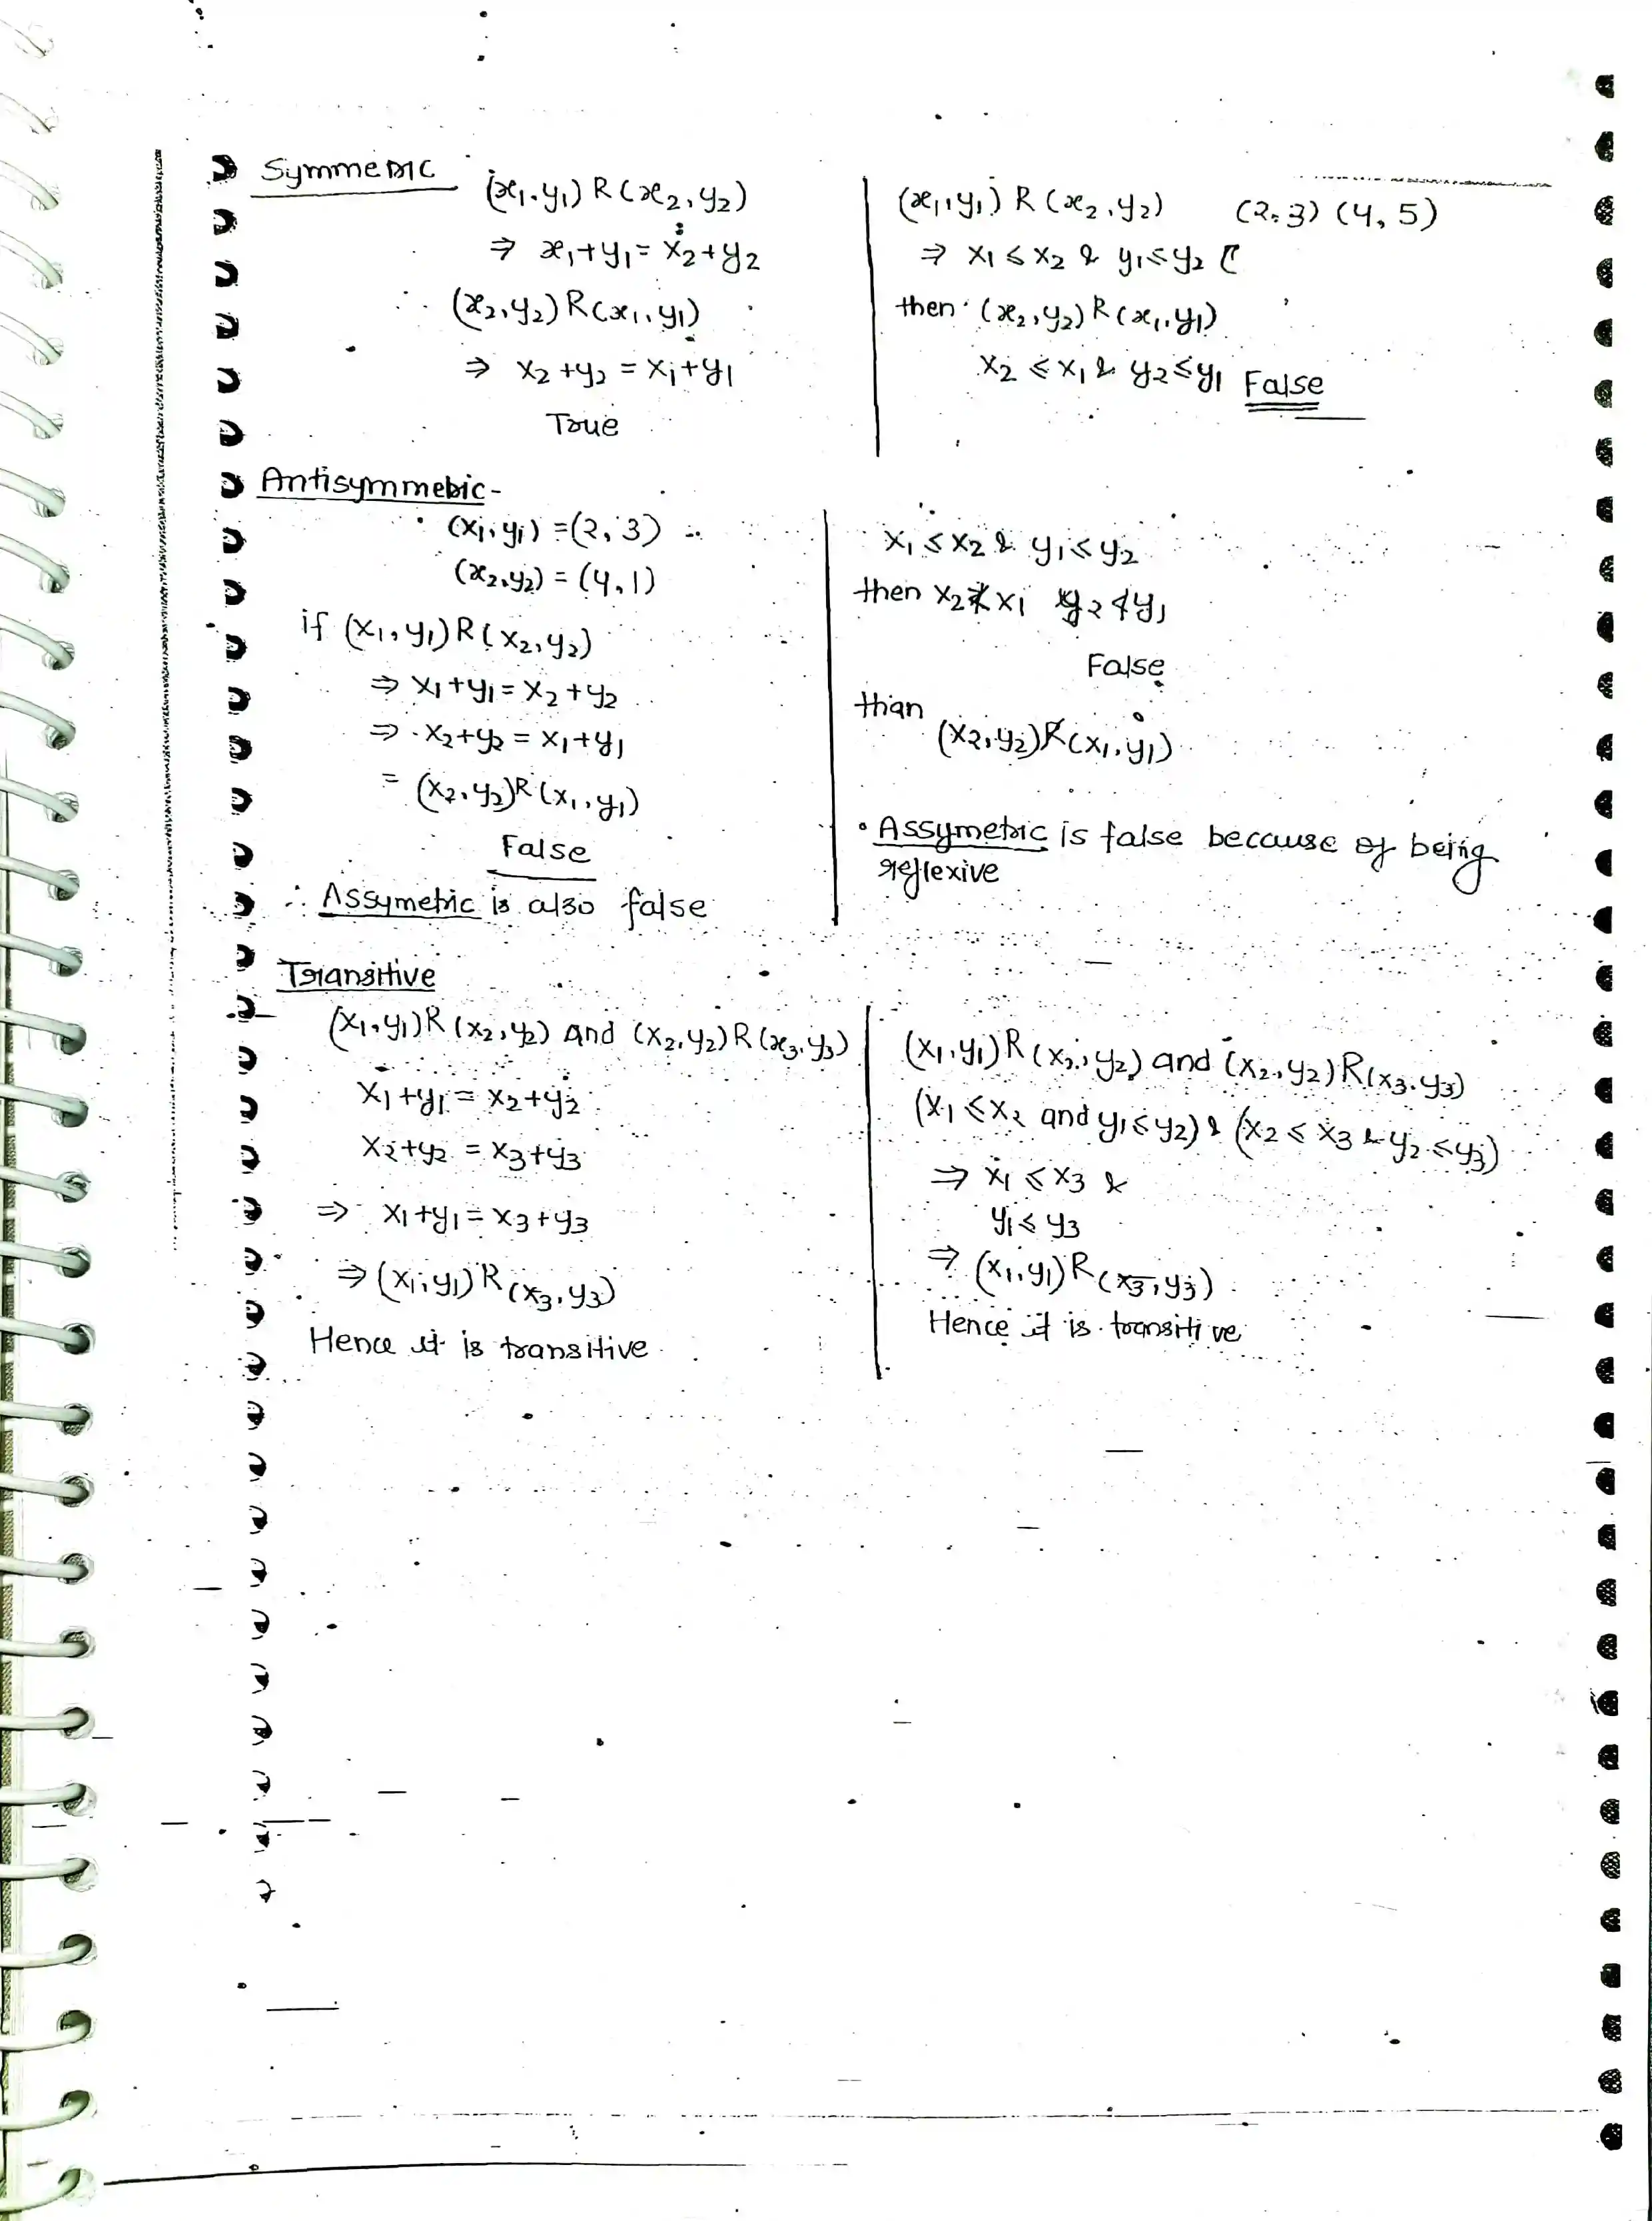 Symmetric
(x₁, y₁) R (x₂, y₂)
⇒ x₁+y₁ = x₂+y₂
∴ (x₂, y₂) R (x₁, y₁)
⇒ x₂+y₂ = x₁+y₁
True
(x₁, y₁) R (x₂, y₂) (2, 3) (4, 5)
⇒ x₁ ≤ x₂ & y₁ ≤ y₂
then (x₂, y₂) R (x₁, y₁)
x₂ ≤ x₁ & y₂ ≤ y₁ False
Antisymmetric-
(x₁, y₁) = (2, 3)
(x₂, y₂) = (4, 1)
if (x₁, y₁) R (x₂, y₂)
⇒ x₁+y₁ = x₂+y₂
⇒ x₂+y₂ = x₁+y₁
= (x₂, y₂) R (x₁, y₁)
False
∴ Assymetric is also false
x₁ ≤ x₂ & y₁ ≤ y₂
then x₂ ≮ x₁ y₂ ≮ y₁
False
than
(x₂, y₂) R̸ (x₁, y₁)
• Assymetric is false because of being
reflexive
Transitive
(x₁, y₁) R (x₂, y₂) and (x₂, y₂) R (x₃, y₃)
x₁+y₁ = x₂+y₂
x₂+y₂ = x₃+y₃
⇒ x₁+y₁ = x₃+y₃
⇒ (x₁, y₁) R (x₃, y₃)
Hence it is transitive
(x₁, y₁) R (x₂, y₂) and (x₂, y₂) R (x₃, y₃)
(x₁ ≤ x₂ and y₁ ≤ y₂) & (x₂ ≤ x₃ & y₂ ≤ y₃)
⇒ x₁ ≤ x₃ &
y₁ ≤ y₃
⇒ (x₁, y₁) R (x₃, y₃)
Hence it is transitive